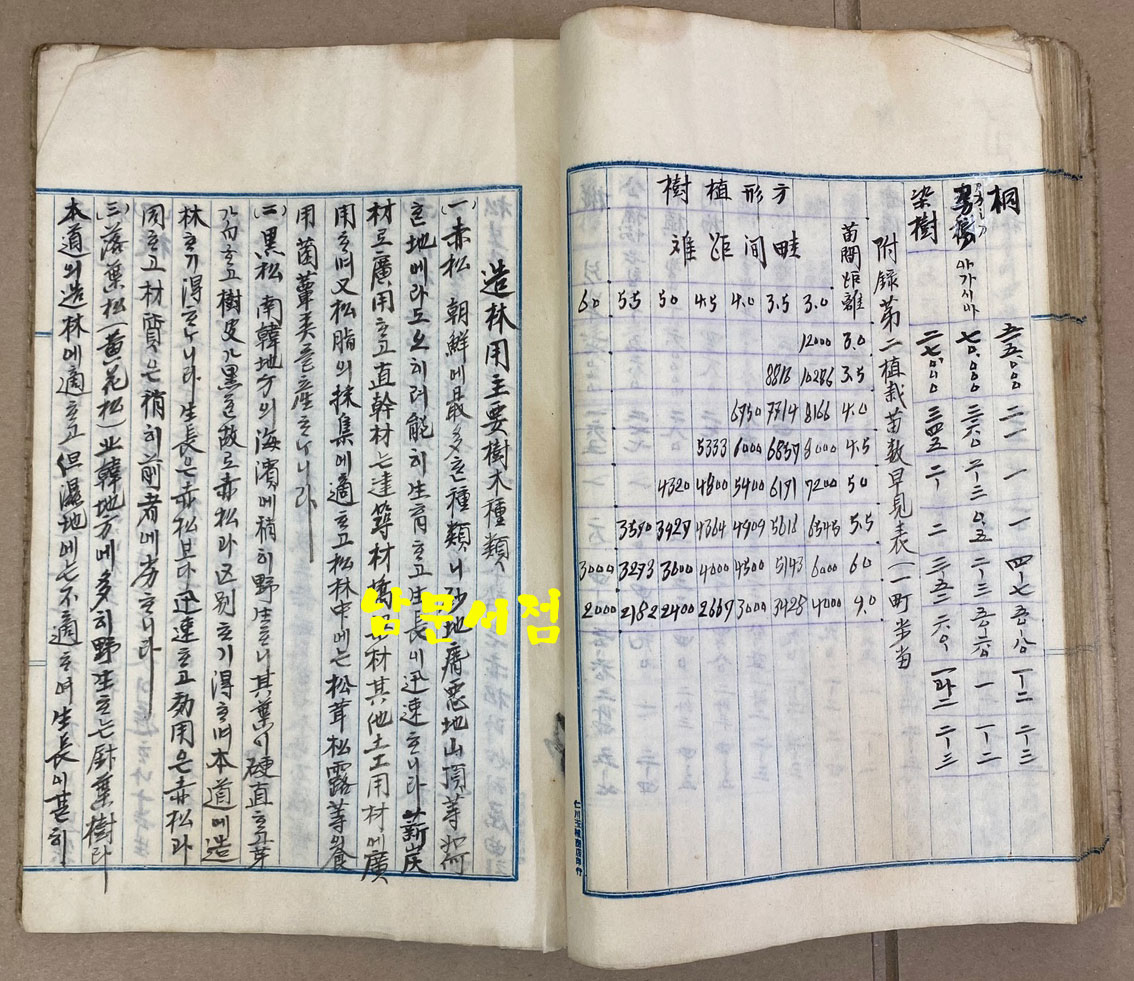 桐 五五.000 二一 一 一 四-七 五-八 一-二 二-三
アカシア 아가시마 七0.000 二六0 二-三 0.五 二-三 五-六 一 一-二
樹 二七.000 三四五 二 二 三五二 六
附錄第二植栽苗数早見表(一町步当
苗間距離
方形植樹
畦间距離
6.0 5.5 50 4.5 4.0 3.5 3.0
12000 3.0
8818 10286 3.5
6750 7714 8166 4.0
5333 6000 6857 8000 4.5
4320 4800 5400 6171 7200 50
3570 3927 4364 4909 5618 6545 5.5
3000 3273 3600 4000 4500 5143 6000 60
2000 2182 2400 2667 3000 3428 4000 9.0
造林用主要樹木種類
(一)赤松 朝鮮에最多ᄒᆞᆫ種類니砂地瘠惡地山頂等如何
ᄒᆞᆫ地에라도오히려能히生育ᄒᆞ고生長이迅速ᄒᆞ니라薪炭
材로廣用ᄒᆞ고直幹材는建築材 材其他土工用材에廣
用ᄒᆞ며又松脂의採集에適ᄒᆞ고松林中에는松茸松露等의食
用菌蕈类를産ᄒᆞᄂᆞ니라
(二)黒松 南韓地方의海濱에稍히野生ᄒᆞ니其葉이硬直ᄒᆞ고芽
가白ᄒᆞ고樹皮가黒ᄒᆞᆫ故로赤松과区别ᄒᆞ기得ᄒᆞ며本道에造
林ᄒᆞ기得ᄒᆞᄂᆞ니라生長은赤松보다迅速ᄒᆞ고効用은赤松과
同ᄒᆞ고材質은稍히前者에劣ᄒᆞ니라
(三)落葉松(黄花松)北韓地方에多히野生ᄒᆞ는針葉樹라
本道의造林에適ᄒᆞ고但濕地에는不適ᄒᆞ며生長이甚히
남문서점